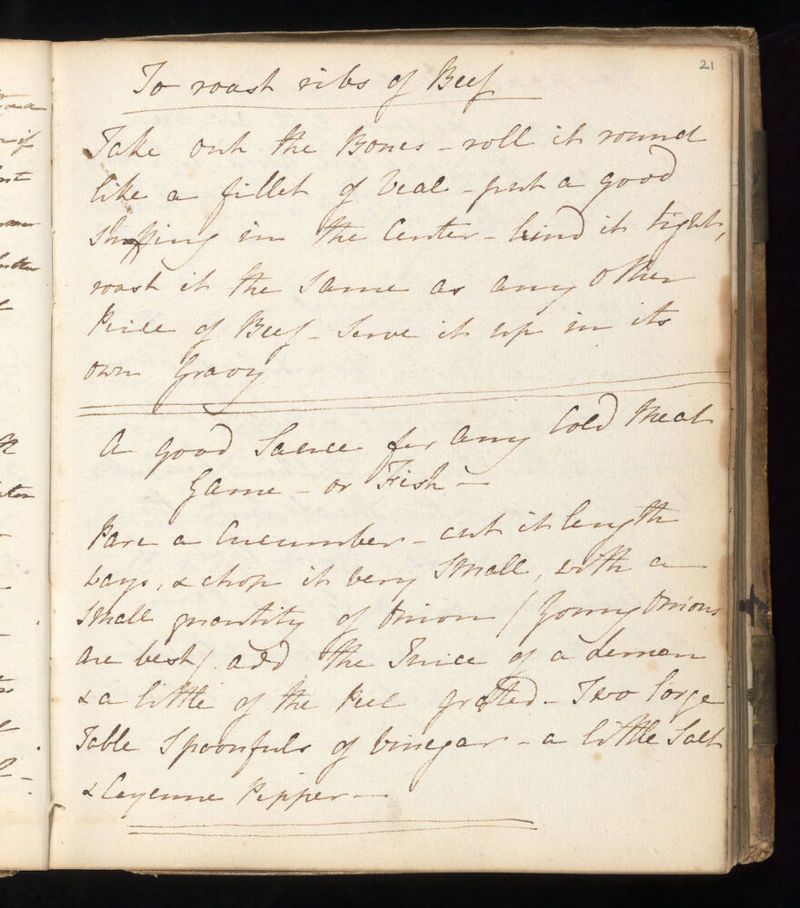 21
To roast ribs of Beef
Take out the Bones - roll it round
like a fillet of Veal - put a good
Stuffing in the Center - bind it tight,
roast it the same as any other
Peice of Beef - Serve it up in its
own Gravy
A good Sauce for any Cold Meat
Game - or Fish -
Pare a Cucumber - cut it length
ways, & chop it very small, with a
small quantity of Onion / Young Onions
are best / add the Juice of a Lemon
& a little of the Peel grated - Two large
Table Spoonfuls of Vinegar - a little Salt
& Cayenne Pepper -